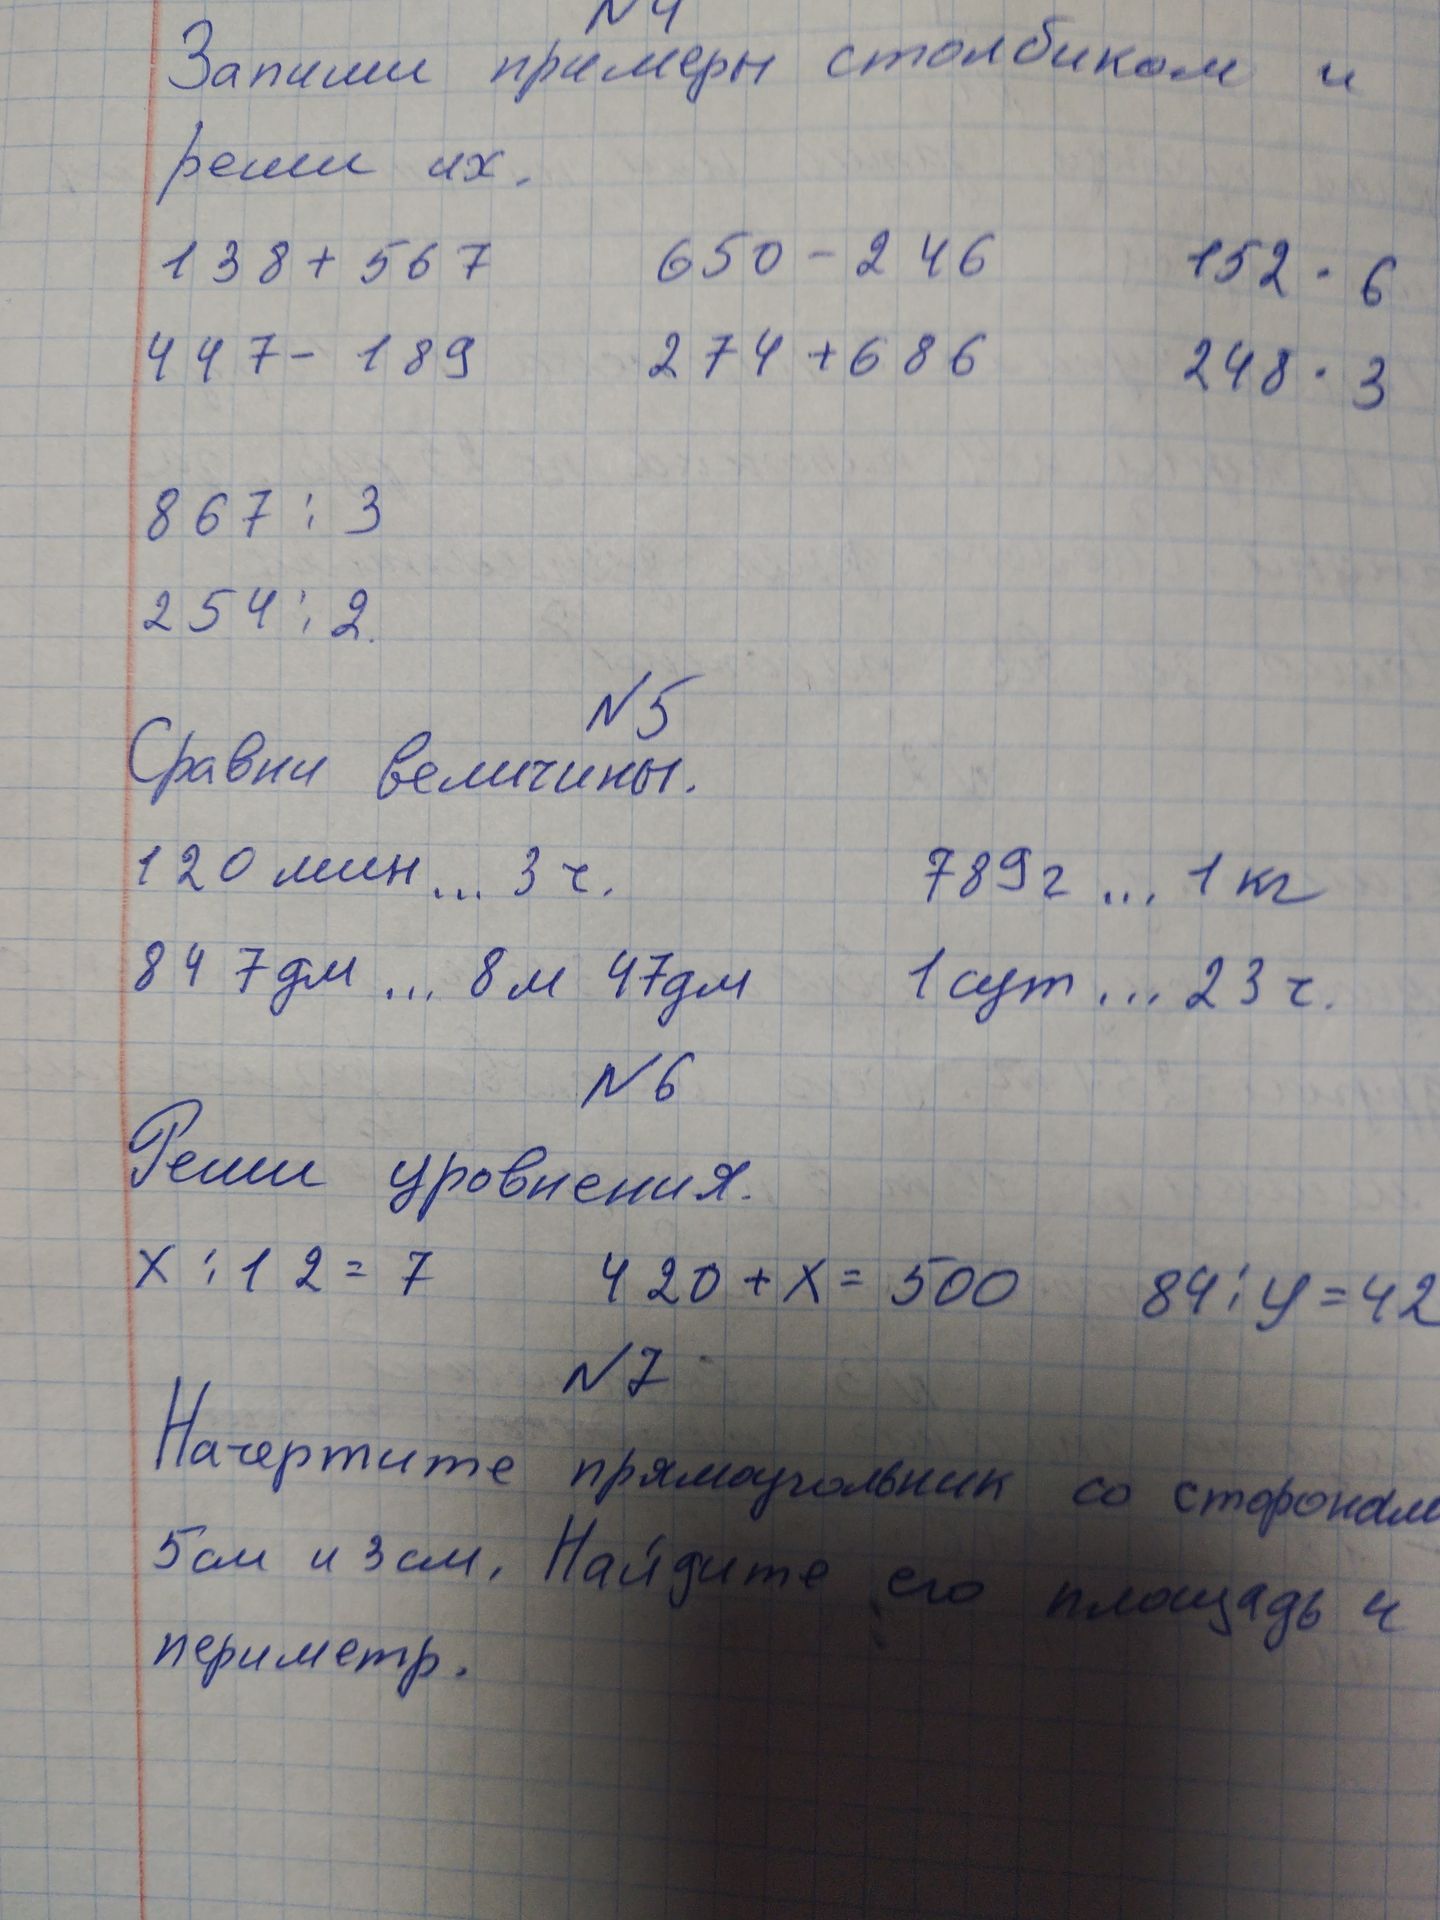 N4
Запиши примеры столбиком и
реши их.
138+567 650-246 152·6
447-189 274+686 248·3
867:3
254:2.
N5
Сравни величины.
120мин... 3ч. 789г ... 1кг
847дм ... 8м 47дм 1сут ... 23ч.
N6
Реши уровнения.
х:12=7 420+х=500 84:у=42
N7
Начертите прямоугольник со сторонам
5см и 3см. Найдите его площадь и
периметр.